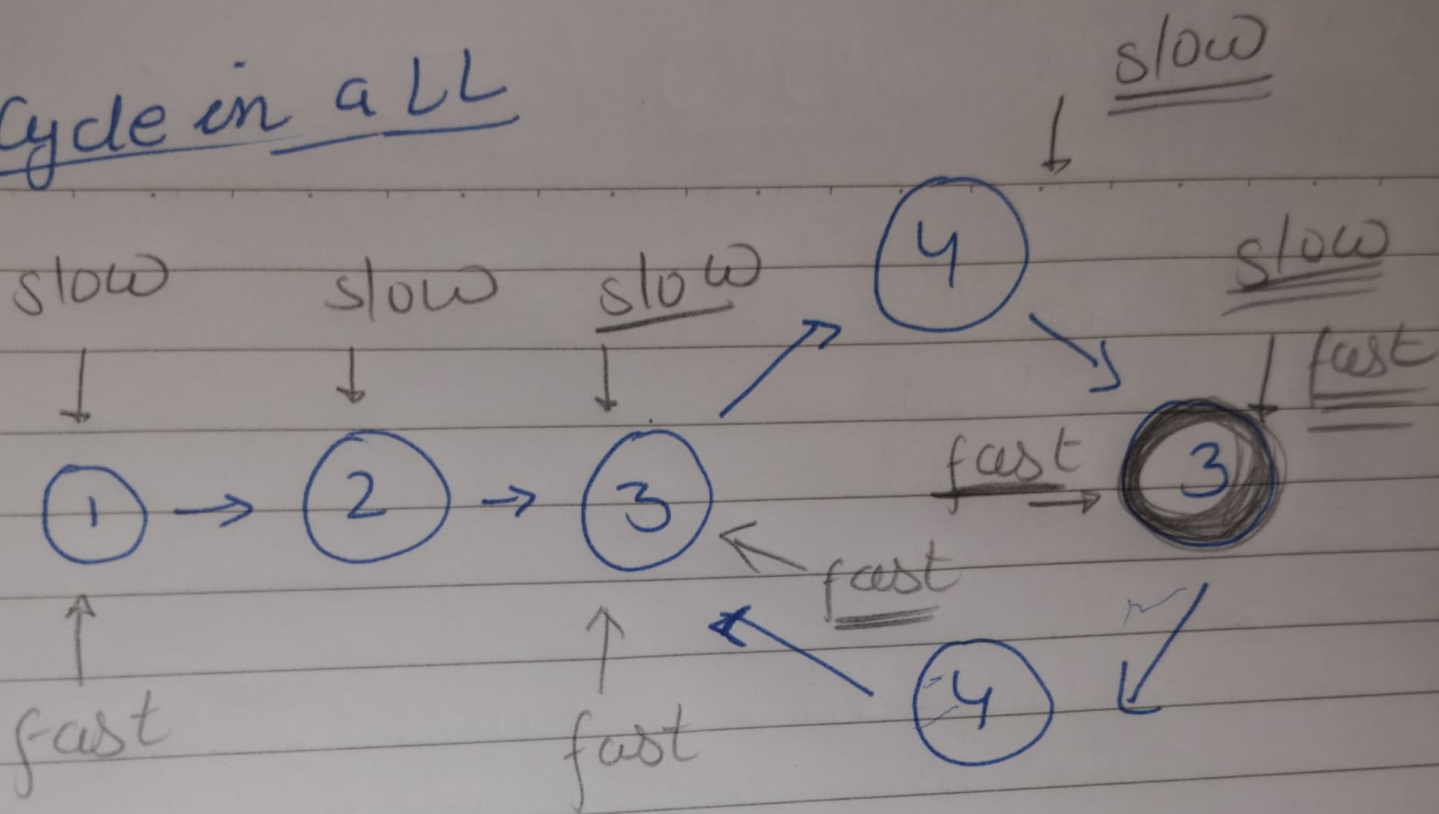 Cycle in a LL
slow
slow
slow
slow
slow
4
slow
fast
1
2
3
fast
3
fast
4
fast
fast